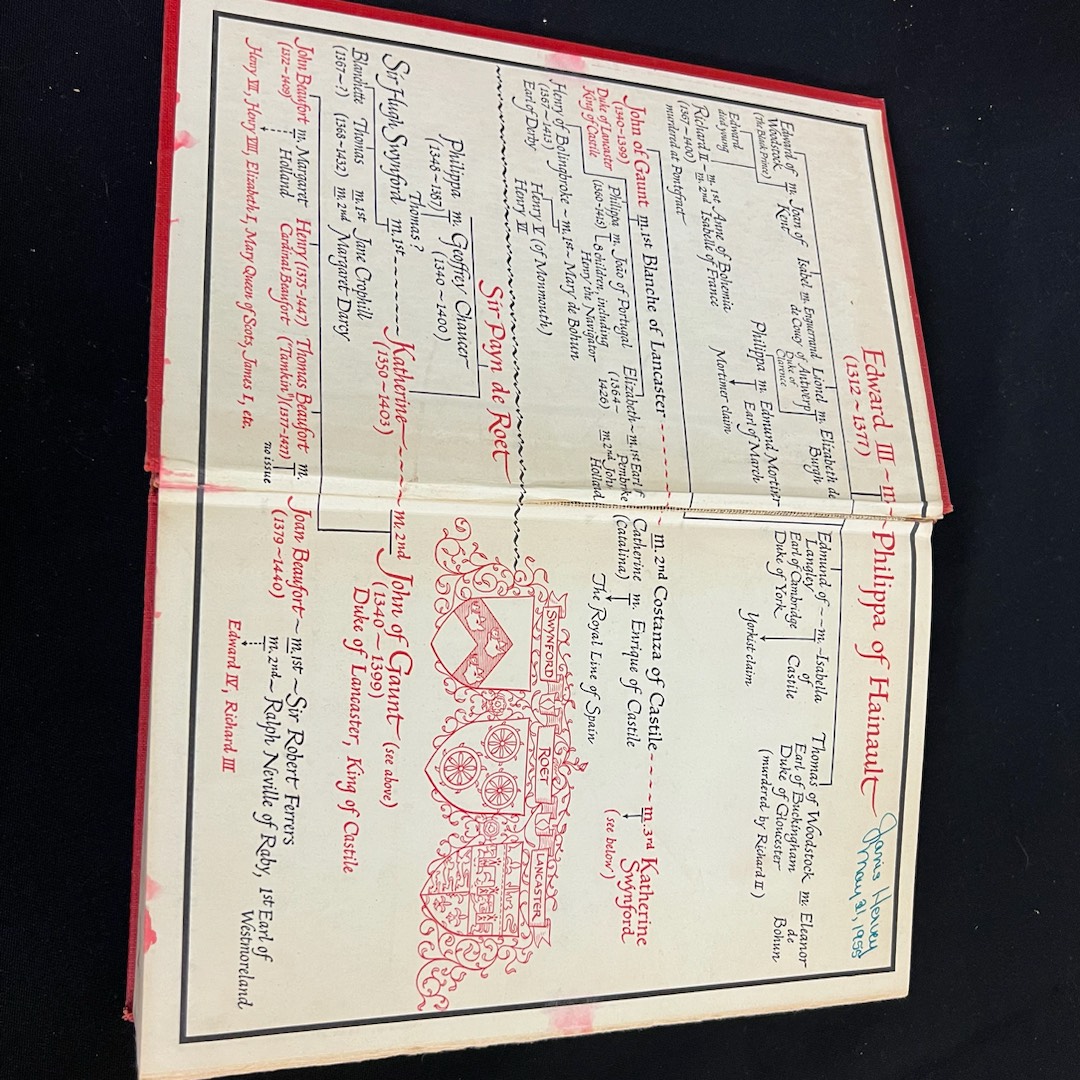 Edward III ~ m ~ Philippa of Hainault
(1312~1377)
Janis Hervey
May 31, 1955
Edward of m. Joan of
Woodstock Kent
(the Black Prince)
Isabel m. Enguerrand
de Coucy
Lionel m. Elizabeth de
of Antwerp Burgh
Duke of
Clarence
Edmund of - - m. ~Isabella
Langley of
Earl of Cambridge Castile
Duke of York
Yorkist claim
Thomas of Woodstock m. Eleanor
Earl of Buckingham de
Duke of Gloucester Bohun
(murdered by Richard II)
Edward
died young
Richard II ~ m. 1st ~ Anne of Bohemia
(1367~1400) m. 2nd Isabelle of France
murdered at Pontefract
Philippa m. Edmund Mortimer
Earl of March
Mortimer claim
John of Gaunt m. 1st Blanche of Lancaster - - - - - - m. 2nd Costanza of Castile - - - - m. 3rd Katherine
(1340~1399) Swynford
Duke of Lancaster (see below)
King of Castile
Philippa m. João of Portugal
(1360~1415) 8 children, including
Henry the Navigator
Elizabeth ~ m. 1st Earl of
(1364~ Pembroke
1426) m. 2nd John
Holland
Catherine m. Enrique of Castile
(Catalina)
The Royal Line of Spain
Henry of Bolingbroke ~ m. 1st ~ Mary de Bohun
(1367~1413)
Earl of Derby
Henry V (of Monmouth)
Henry VI
Sir Payn de Roet
Philippa m. Geoffrey Chaucer
(1348~1387) (1340~1400)
Thomas?
SWYNFORD
ROET
LANCASTER
Sir Hugh Swynford m. 1st - - - - - - Katherine ~ ~ ~ ~ m. 2nd John of Gaunt (see above)
(1350~1403) (1340~1399)
Duke of Lancaster, King of Castile
Blanchette Thomas m. 1st Jane Crophill
(1367~?) (1368~1432) m. 2nd Margaret Darcy
John Beaufort m. Margaret
(1372~1409) Holland
Henry (1375~1447)
Cardinal Beaufort
Thomas Beaufort m.
("Tamkin") (1377~1427)
no issue
Joan Beaufort ~ m. 1st ~ Sir Robert Ferrers
(1379~1440) m. 2nd ~ Ralph Neville of Raby, 1st Earl of
Westmoreland
Henry VII, Henry VIII, Elizabeth I, Mary Queen of Scots, James I, etc.
Edward IV, Richard III